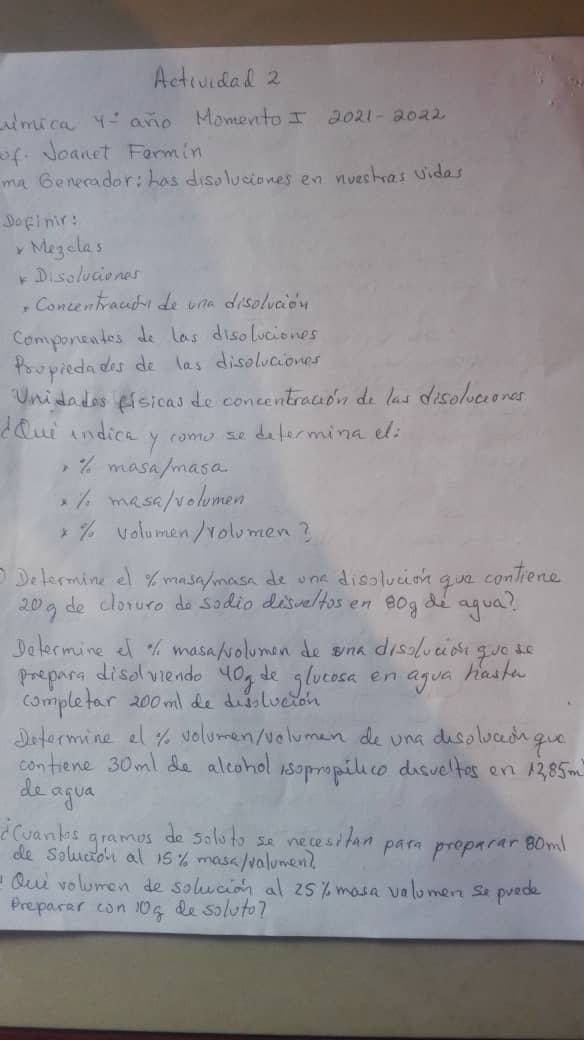 Actividad 2
uímica 4º año Momento I 2021-2022
of. Joanet Fermín
ma Generador: Las disoluciones en nuestras vidas
Definir:
* Mezclas
* Disoluciones
* Concentración de una disolución
Componentes de las disoluciones
Propiedades de las disoluciones
Unidades físicas de concentración de las disoluciones
¿Qué indica y como se determina el:
* % masa/masa
* % masa/volumen
* % volumen/volumen?
Determine el % masa/masa de una disolución que contiene
20g de cloruro de sodio disueltos en 80g de agua?
Determine el % masa/volumen de una disolución que se
prepara disolviendo 40g de glucosa en agua hasta
completar 200ml de disolución
Determine el % volumen/volumen de una disolución que
contiene 30ml de alcohol isopropílico disueltos en 12,85m
de agua
¿Cuantos gramos de soluto se necesitan para preparar 80ml
de solución al 15% masa/volumen?
Qué volumen de solución al 25% masa volumen se puede
preparar con 10g de soluto?